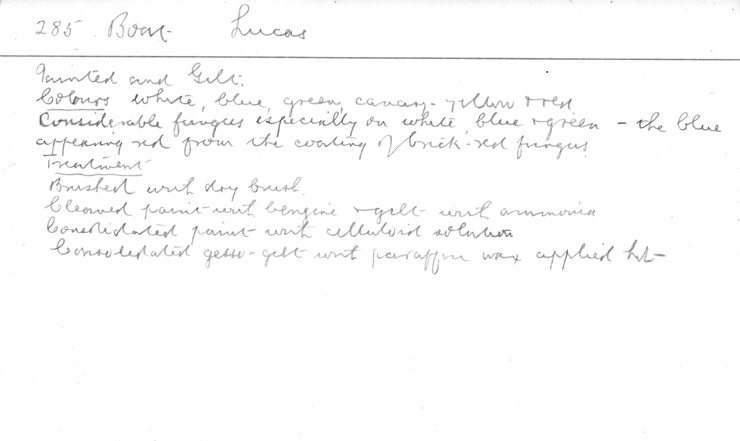 285 Boat Lucas
Painted and Gilt.
Colours white, blue, green, canary-yellow & red
Considerable fungus especially on white, blue & green - the blue
appearing red from the coating of brick-red fungus
Treatment
Brushed with dry brush.
Cleaned paint with benzine & gilt with ammonia
Consolidated paint with celluloid solution
Consolidated gesso-gilt with paraffin wax applied hot